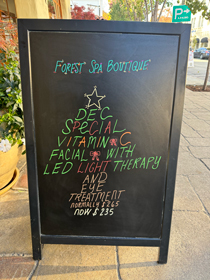 P
FOREST SPA BOUTIQUE
DEC
SPECIAL
VITAMIN C
FACIAL WITH
LED LIGHT THERAPY
AND
EYE
TREATMENT
NORMALLY $265
NOW $235